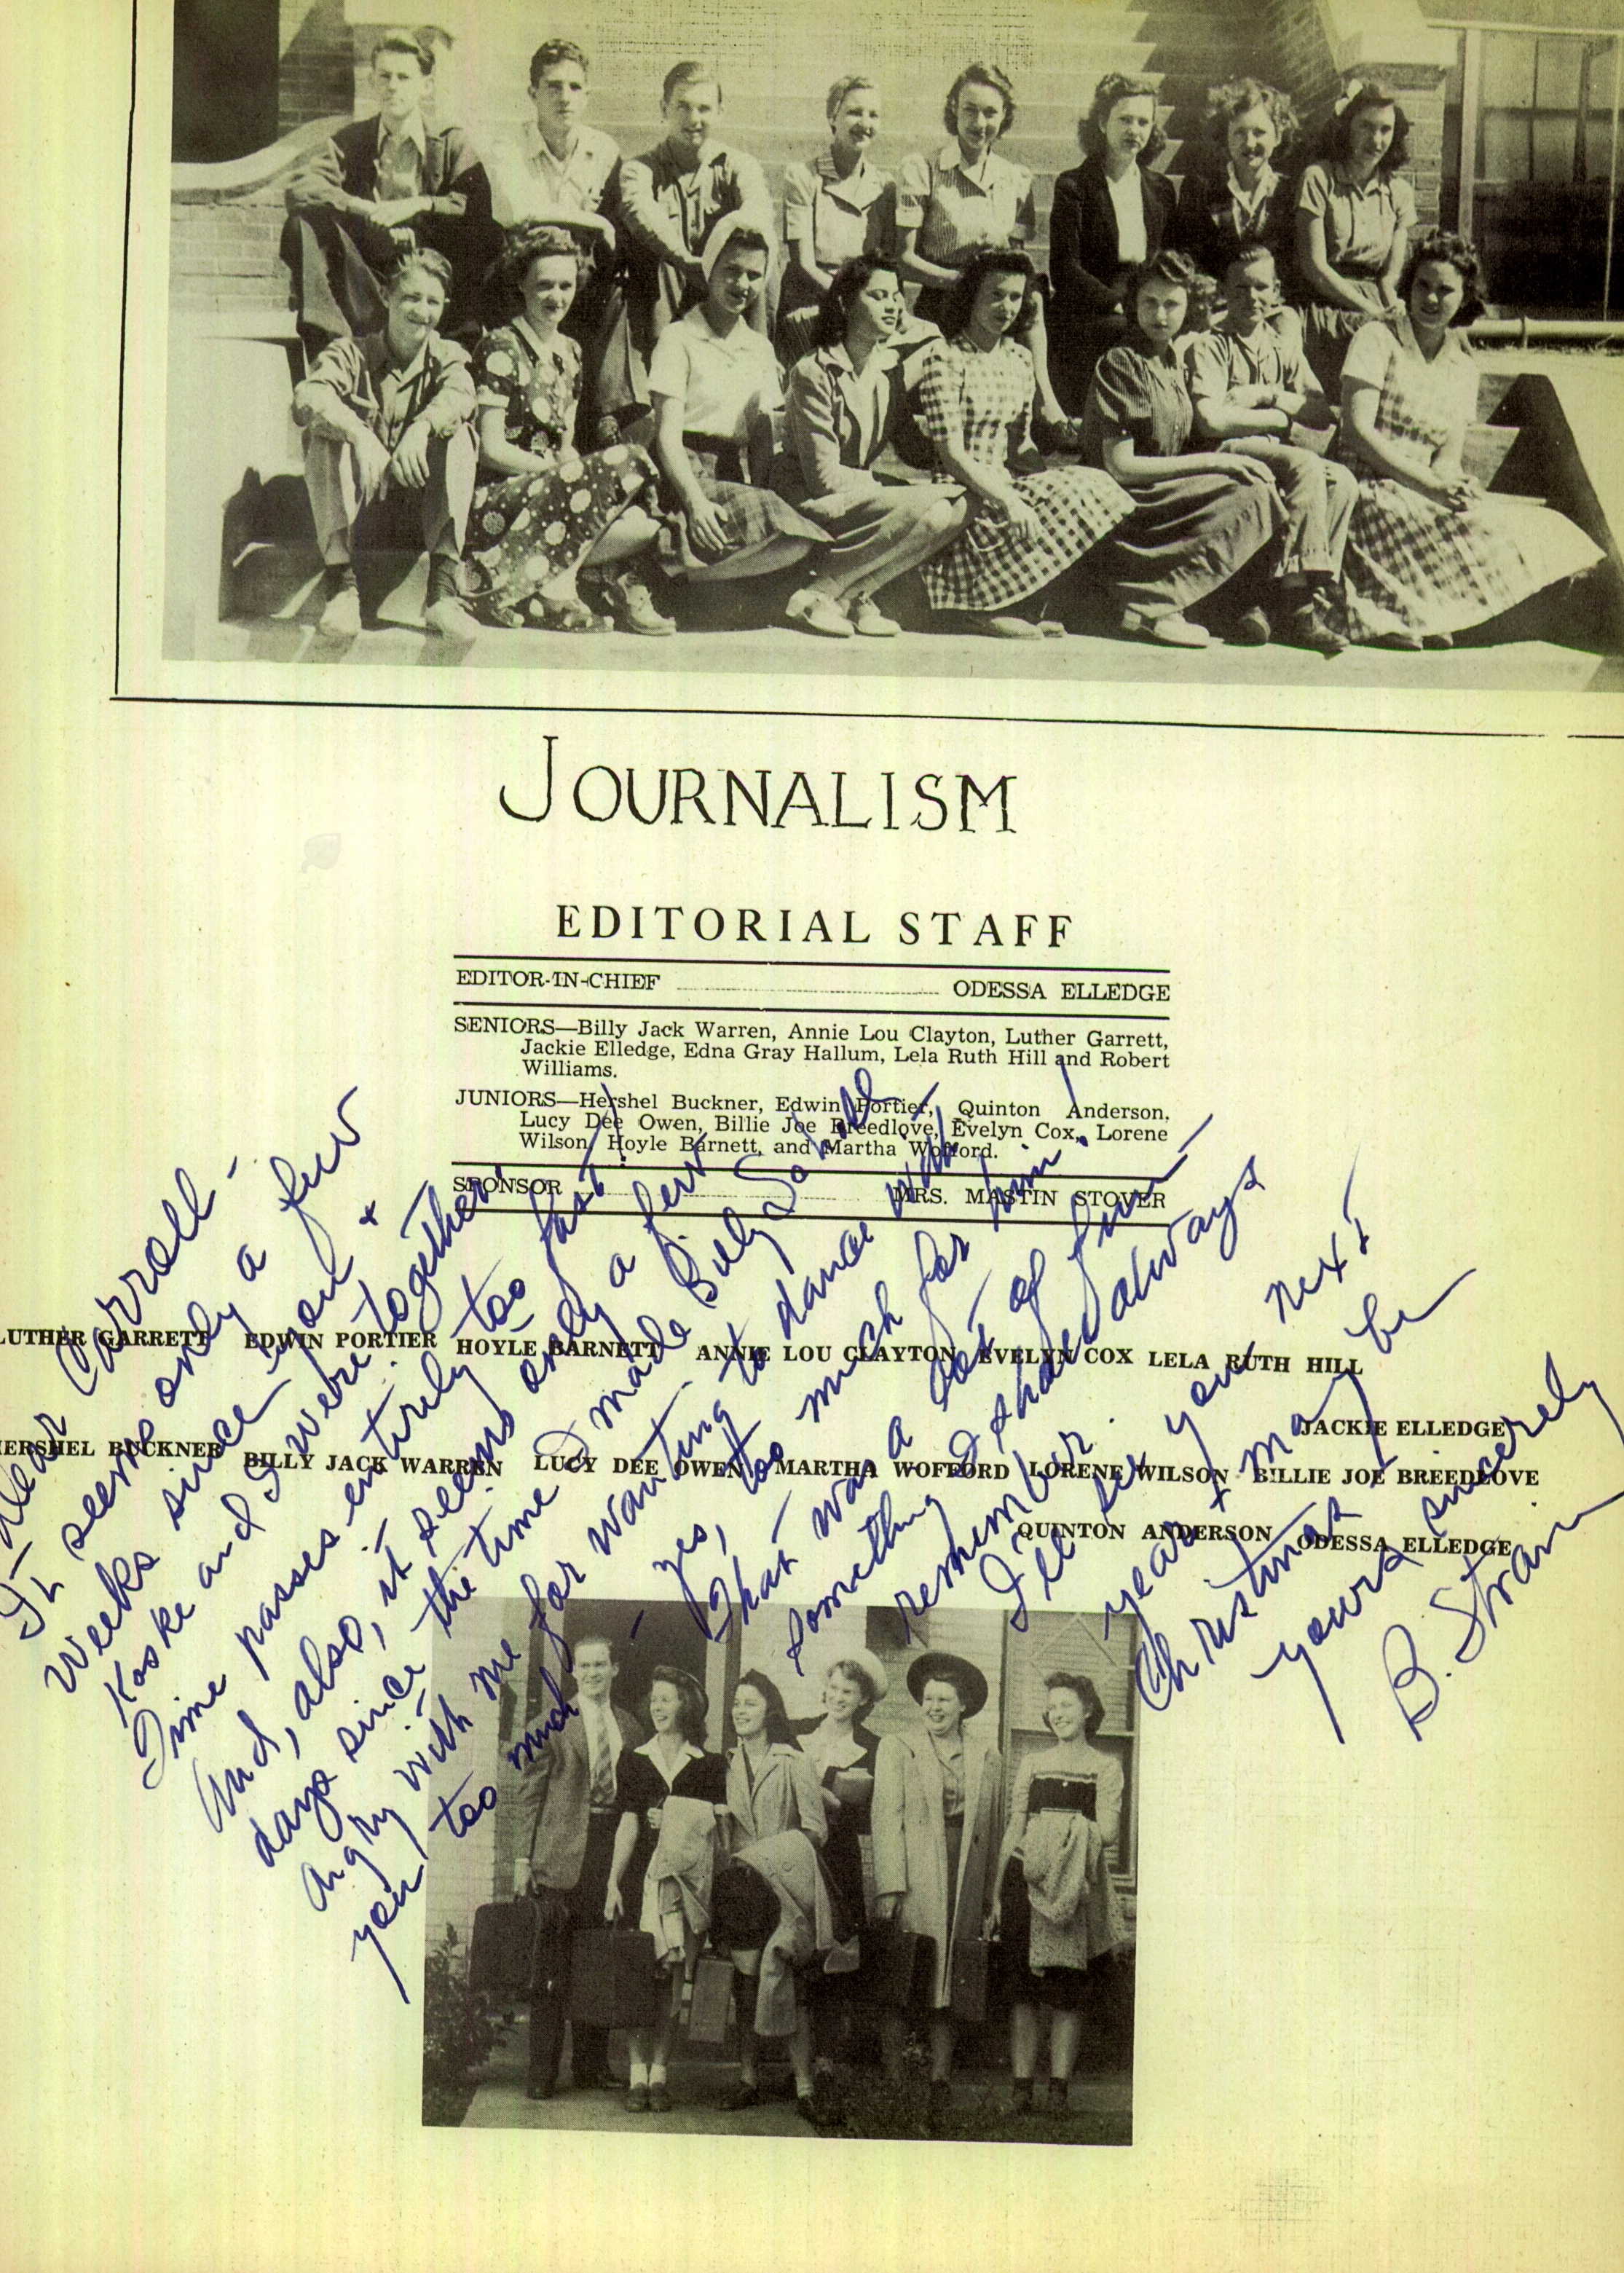 JOURNALISM
EDITORIAL STAFF
EDITOR-IN-CHIEF ODESSA ELLEDGE
SENIORS—Billy Jack Warren, Annie Lou Clayton, Luther Garrett,
Jackie Elledge, Edna Gray Hallum, Lela Ruth Hill and Robert
Williams.
JUNIORS—Hershel Buckner, Edwin Portier, Quinton Anderson,
Lucy Dee Owen, Billie Joe Breedlove, Evelyn Cox, Lorene
Wilson, Hoyle Barnett, and Martha Wofford.
SPONSOR MRS. MASTIN STOVER
LUTHER GARRETT EDWIN PORTIER HOYLE BARNETT ANNIE LOU CLAYTON EVELYN COX LELA RUTH HILL
JACKIE ELLEDGE
HERSHEL BUCKNER BILLY JACK WARREN LUCY DEE OWEN MARTHA WOFFORD LORENE WILSON BILLIE JOE BREEDLOVE
QUINTON ANDERSON ODESSA ELLEDGE
Dear Carroll -
It seems only a few
weeks since you &
Koske and I were together.
Time passes entirely too fast!
And, also, it seems only a few
days since the time I made Billy
angry with me for wanting to dance with
you too much - yes, too much for him!
That was a lot of fun -
something I shall always
remember.
I'll see you next
year & may be
Christmas -
yours sincerely
B. Strain